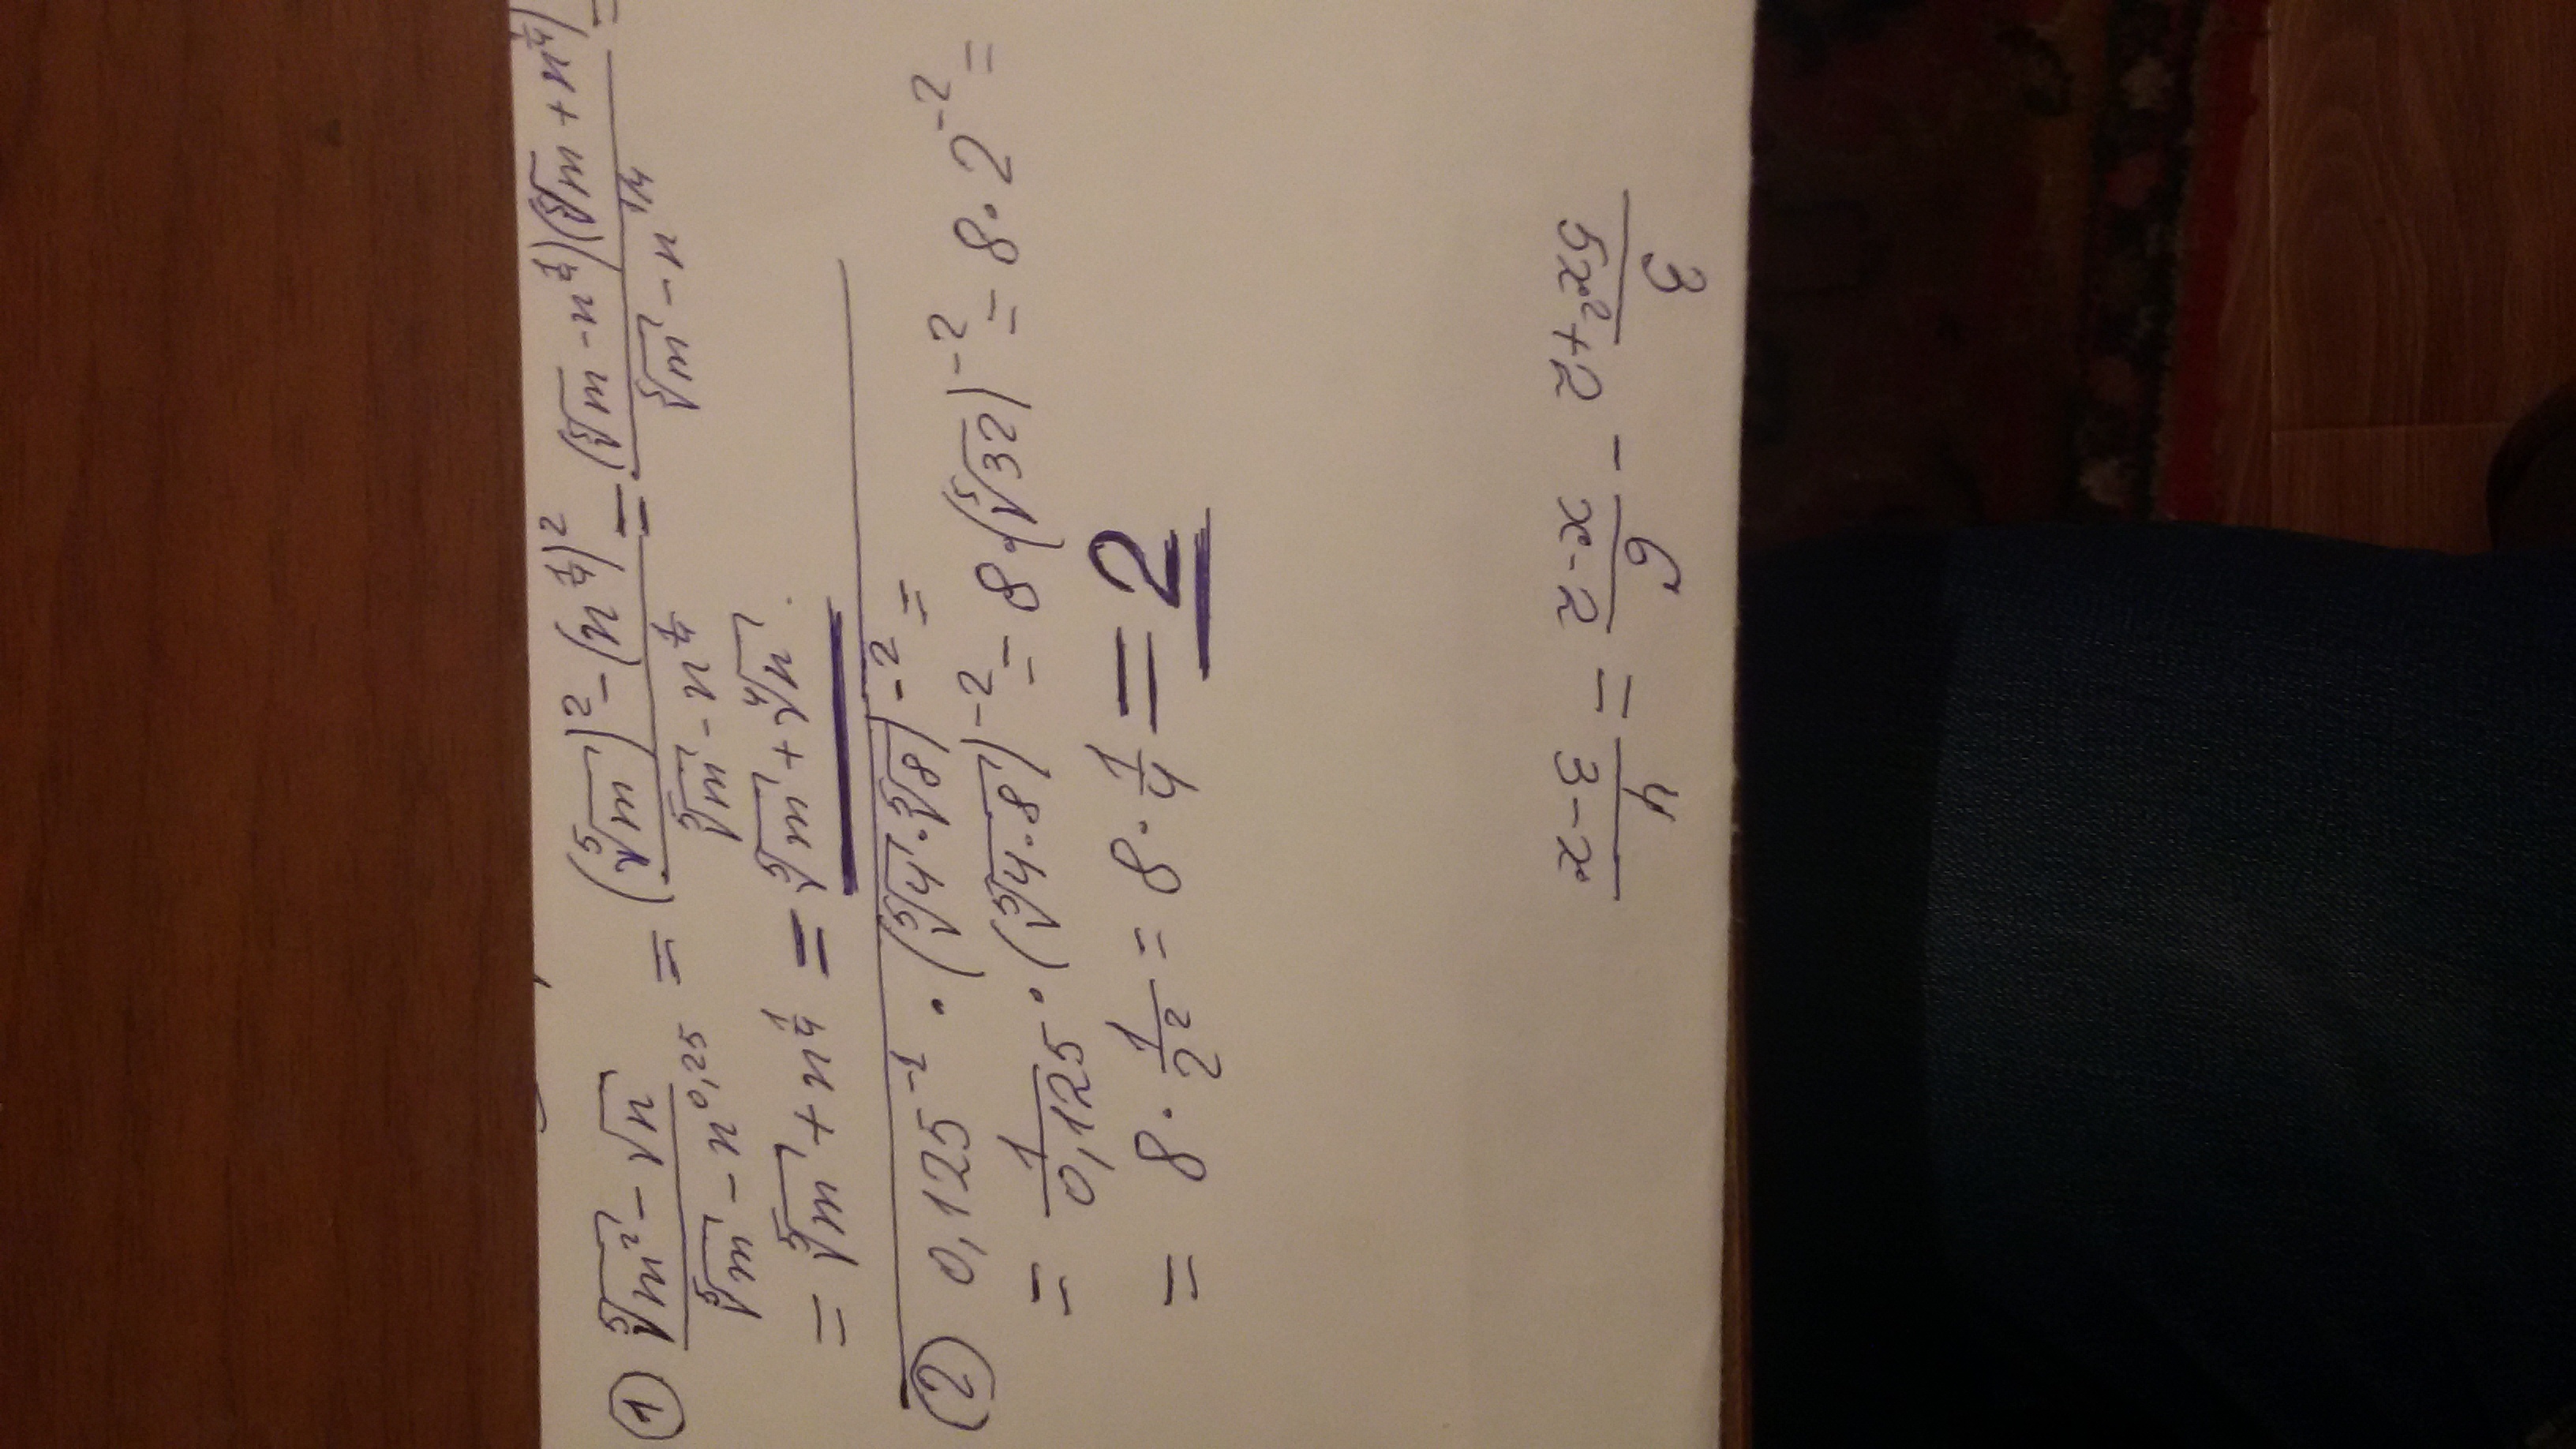 ① (⁵√m² - √n)/(⁵√m - n^0,25) = ((⁵√m)² - (n^1/4)²)/(⁵√m - n^1/4) = ((⁵√m - n^1/4)(⁵√m + n^1/4))/(⁵√m - n^1/4) =
= ⁵√m + n^1/4 = ⁵√m + ⁴√n.
② 0,125⁻¹ · (⁵√4 · ⁵√8)⁻² =
= 1/0,125 · (⁵√4·8)⁻² = 8·(⁵√32)⁻² = 8·2⁻² =
= 8 · 1/2² = 8 · 1/4 = 2
3/(5x²+2) - 6/(x-2) = 4/(3-x)